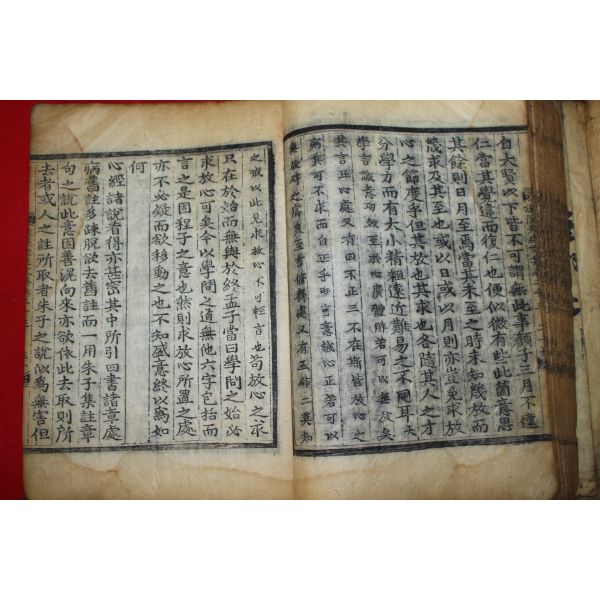 自大賢以下皆不可謂無此事顏子三月不違
仁當其覺違而復仁也便似微有些此箇意思
其餘則日月至焉當其未至之時未知幾放而
幾求及其至也或以日或以月則亦豈免求放
心之節度乎但其放也其求也各隨其人之才
分學力而有大小精粗遠近難易之不同耳大
學言誠意功效至於心廣體胖若可以無放矣
其言正心處又有由不正三不在斯皆放心之
病
之戒以此見求放心不可輕言也苟放心之求
只在於始而無與於終孟子當曰學問之始必
求放心可矣今以學問之道無他六字包括而
言之是固程子之意也然則求放心所置之處
亦不必疑而欲移動之也不知盛意終以爲如
何
心經諸說看得亦甚密其中所引四書諸章處
病舊註多疎脫欲去舊註而一用朱子集註章
句之說此意固善滉向來亦欲依此去取則所
去者或人之註所取者朱子之說似爲無害但